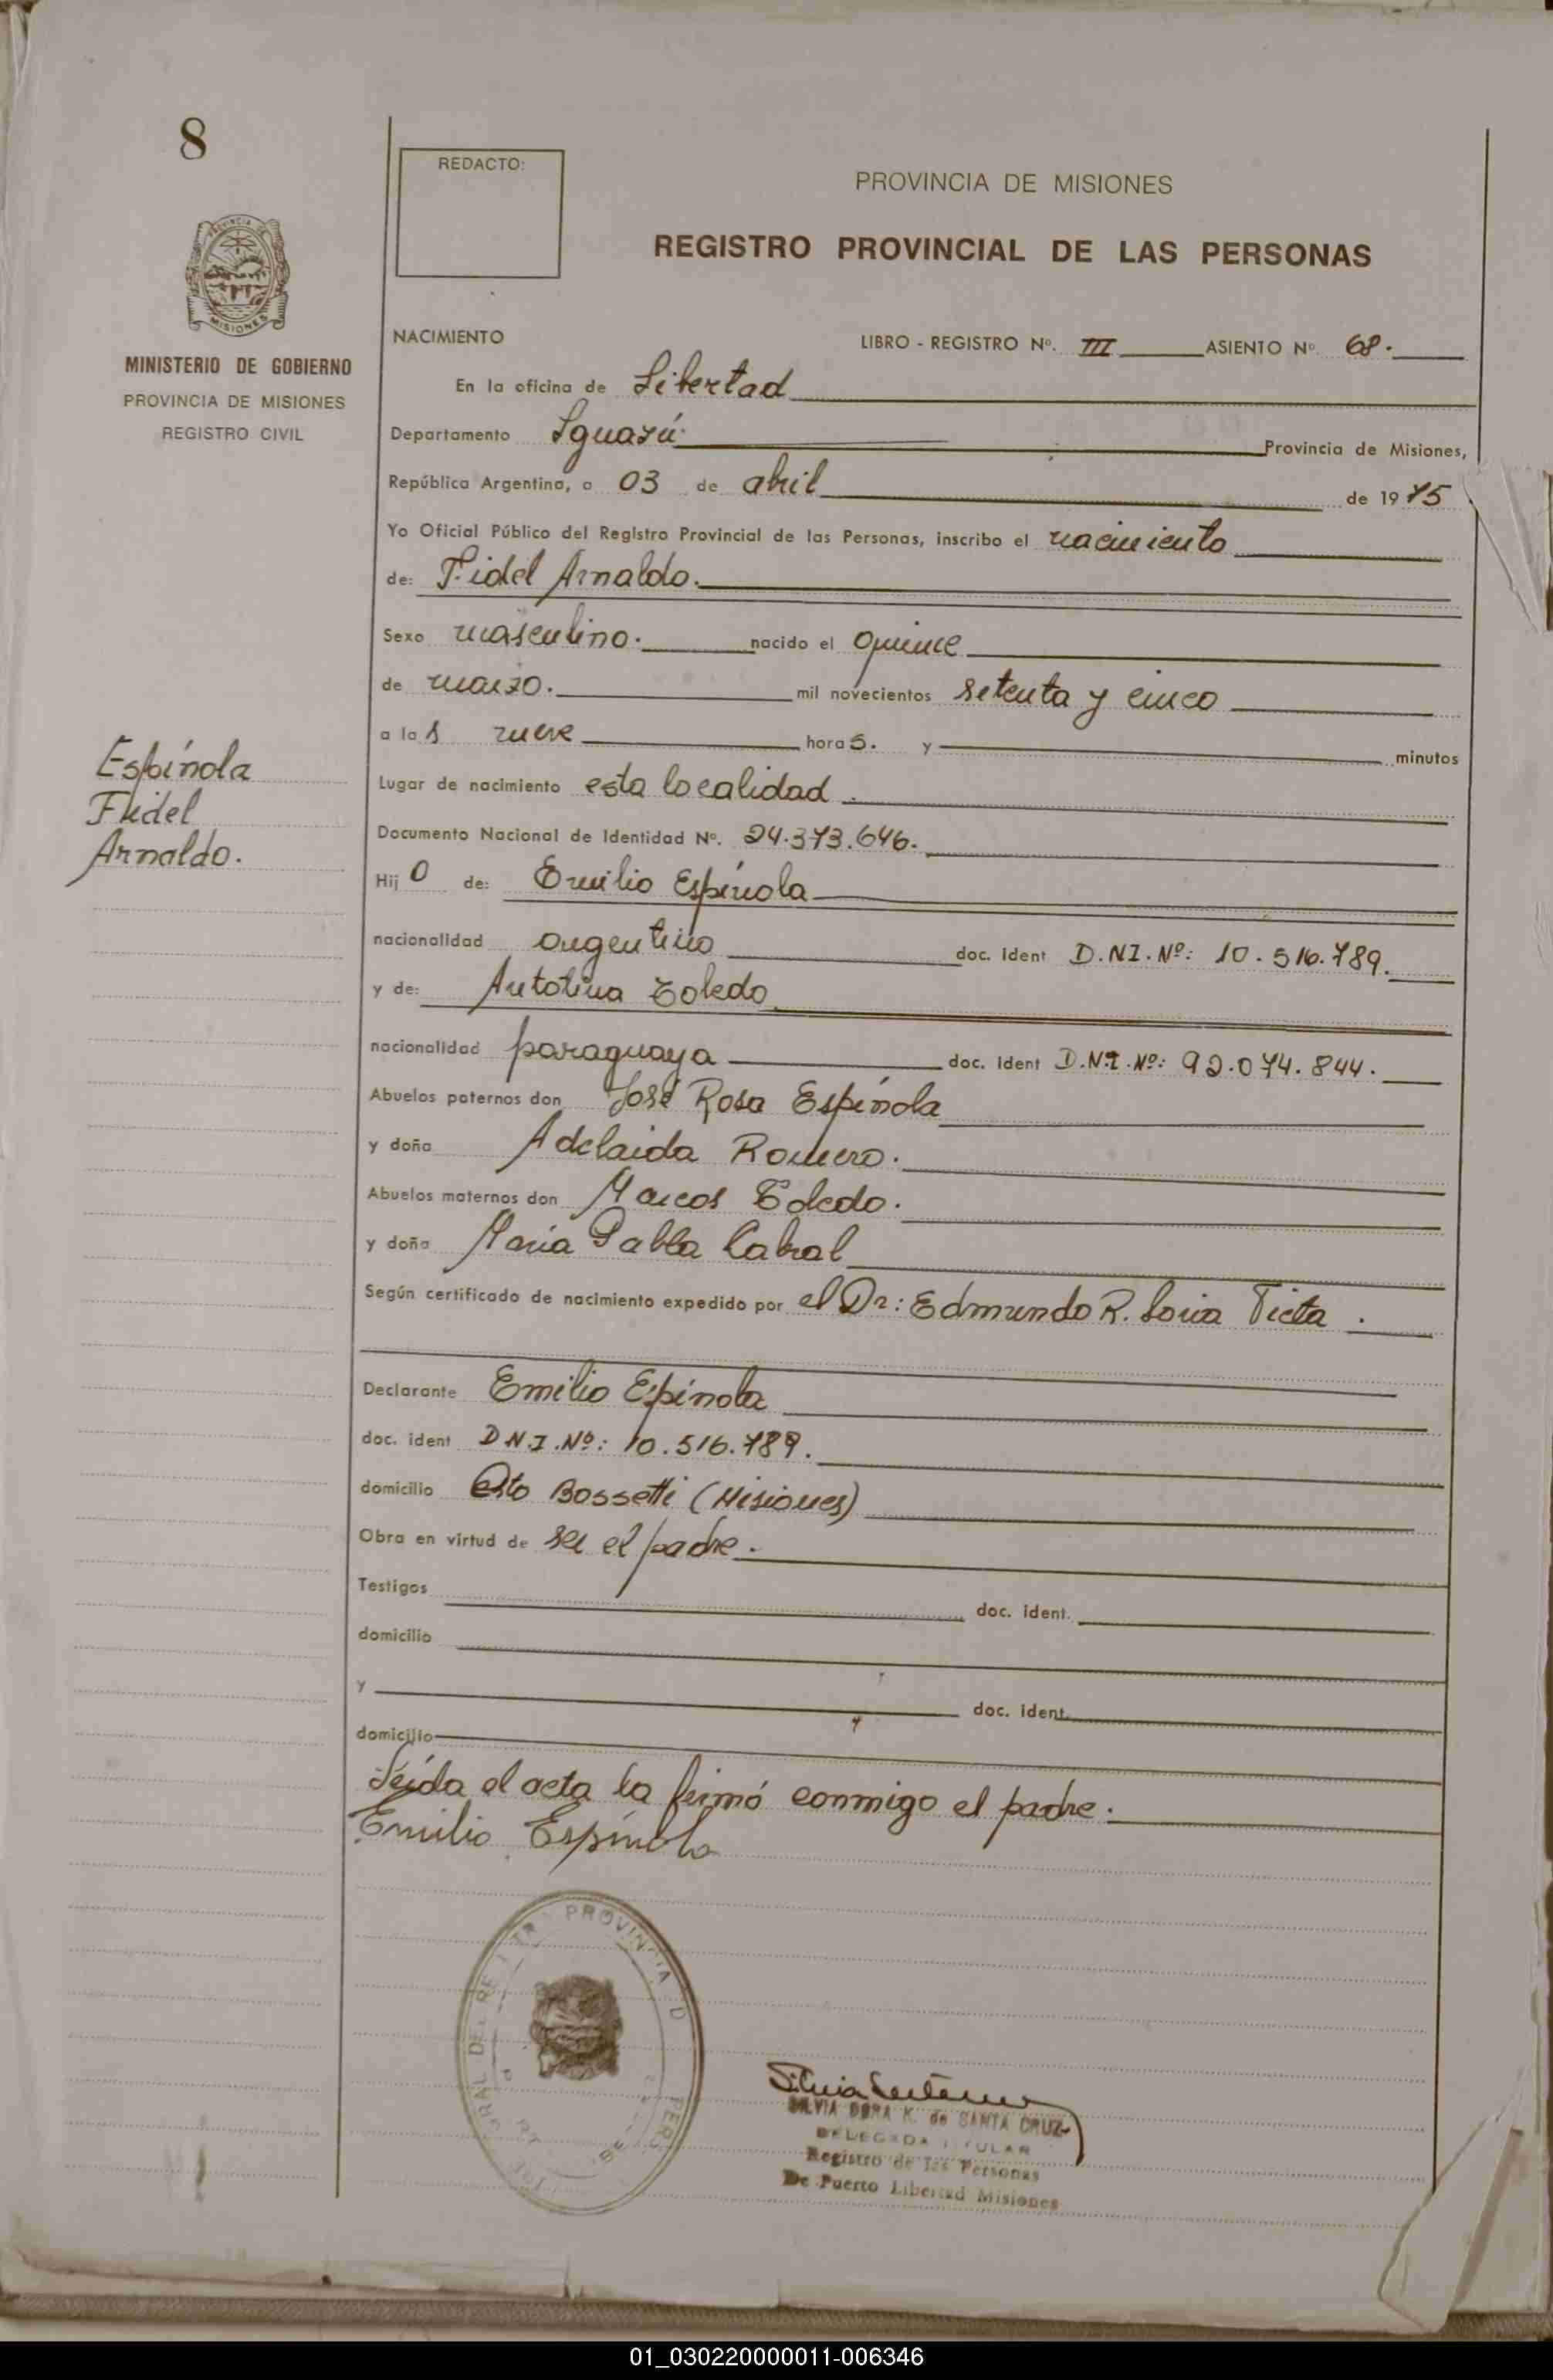 8
REDACTO:
PROVINCIA DE MISIONES
REGISTRO PROVINCIAL DE LAS PERSONAS
PROVINCIA DE
MISIONES
MINISTERIO DE GOBIERNO
PROVINCIA DE MISIONES
REGISTRO CIVIL
NACIMIENTO LIBRO - REGISTRO Nº. III ASIENTO Nº 68.
En la oficina de Libertad
Departamento Iguazú. Provincia de Misiones,
República Argentina, a 03 de abril de 1975
Yo Oficial Público del Registro Provincial de las Personas, inscribo el nacimiento
de: Fidel Arnaldo.
Sexo masculino. nacido el quince
de marzo. mil novecientos setenta y cinco
a las nueve horas. y minutos
Lugar de nacimiento esta localidad.
Documento Nacional de Identidad Nº. 24.373.646.
Hijo de: Emilio Espínola
nacionalidad argentino doc. ident D.N.I. Nº: 10.516.789.
y de: Antolina Toledo
nacionalidad paraguaya doc. ident D.N.I. Nº: 92.074.844.
Abuelos paternos don José Rosa Espínola
y doña Adelaida Romero.
Abuelos maternos don Marcos Toledo.
y doña María Pabla Cabral
Según certificado de nacimiento expedido por el Dr: Edmundo R. Soria
Declarante Emilio Espínola
doc. ident D.N.I. Nº: 10.516.789.
domicilio Pto Bossetti (Misiones)
Obra en virtud de ser el padre.
Testigos doc. ident.
domicilio
y doc. ident.
domicilio
Leída el acta la firmó conmigo el padre.
Emilio Espínola
Espínola
Fidel
Arnaldo.
PROVINCIA D
SILVIA DORA K. de SANTA CRUZ
DELEGADA TITULAR
Registro de las Personas
De Puerto Libertad Misiones
01_030220000011-006346